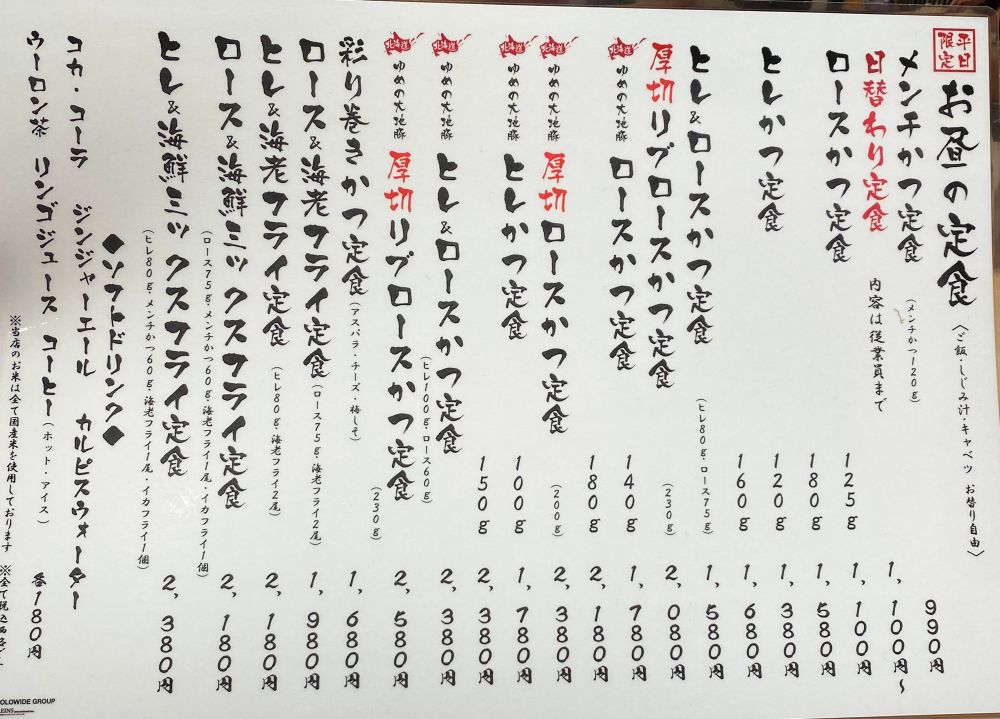 平日限定 お昼の定食 〈ご飯・しじみ汁・キャベツ お替り自由〉
メンチかつ定食 (メンチかつ120g) 990円
日替わり定食 内容は従業員まで 1,100円〜
ロースかつ定食 125g 1,100円
180g 1,580円
ヒレかつ定食 120g 1,380円
160g 1,680円
ヒレ&ロースかつ定食 (ヒレ80g・ロース75g) 1,580円
厚切リブロースかつ定食 (230g) 2,080円
北海道 ゆめの大地豚 ロースかつ定食 140g 1,780円
180g 2,180円
北海道 ゆめの大地豚 厚切ロースかつ定食 (200g) 2,380円
北海道 ゆめの大地豚 ヒレかつ定食 100g 1,780円
150g 2,380円
北海道 ゆめの大地豚 ヒレ&ロースかつ定食 (ヒレ100g・ロース60g) 2,380円
北海道 ゆめの大地豚 厚切リブロースかつ定食 (230g) 2,580円
彩り巻きかつ定食 (アスパラ・チーズ・梅しそ) 1,680円
ロース&海老フライ定食 (ロース75g・海老フライ2尾) 1,980円
ヒレ&海老フライ定食 (ヒレ80g・海老フライ2尾) 2,180円
ロース&海鮮ミックスフライ定食 2,180円
(ロース75g・メンチかつ60g・海老フライ1尾・イカフライ1個)
ヒレ&海鮮ミックスフライ定食 2,380円
(ヒレ80g・メンチかつ60g・海老フライ1尾・イカフライ1個)
◆ソフトドリンク◆
コカ・コーラ ジンジャーエール カルピスウォーター
ウーロン茶 リンゴジュース コーヒー(ホット・アイス) 各180円
※当店のお米は全て国産米を使用しております ※全て税込
OLOWIDE GROUP
EINS